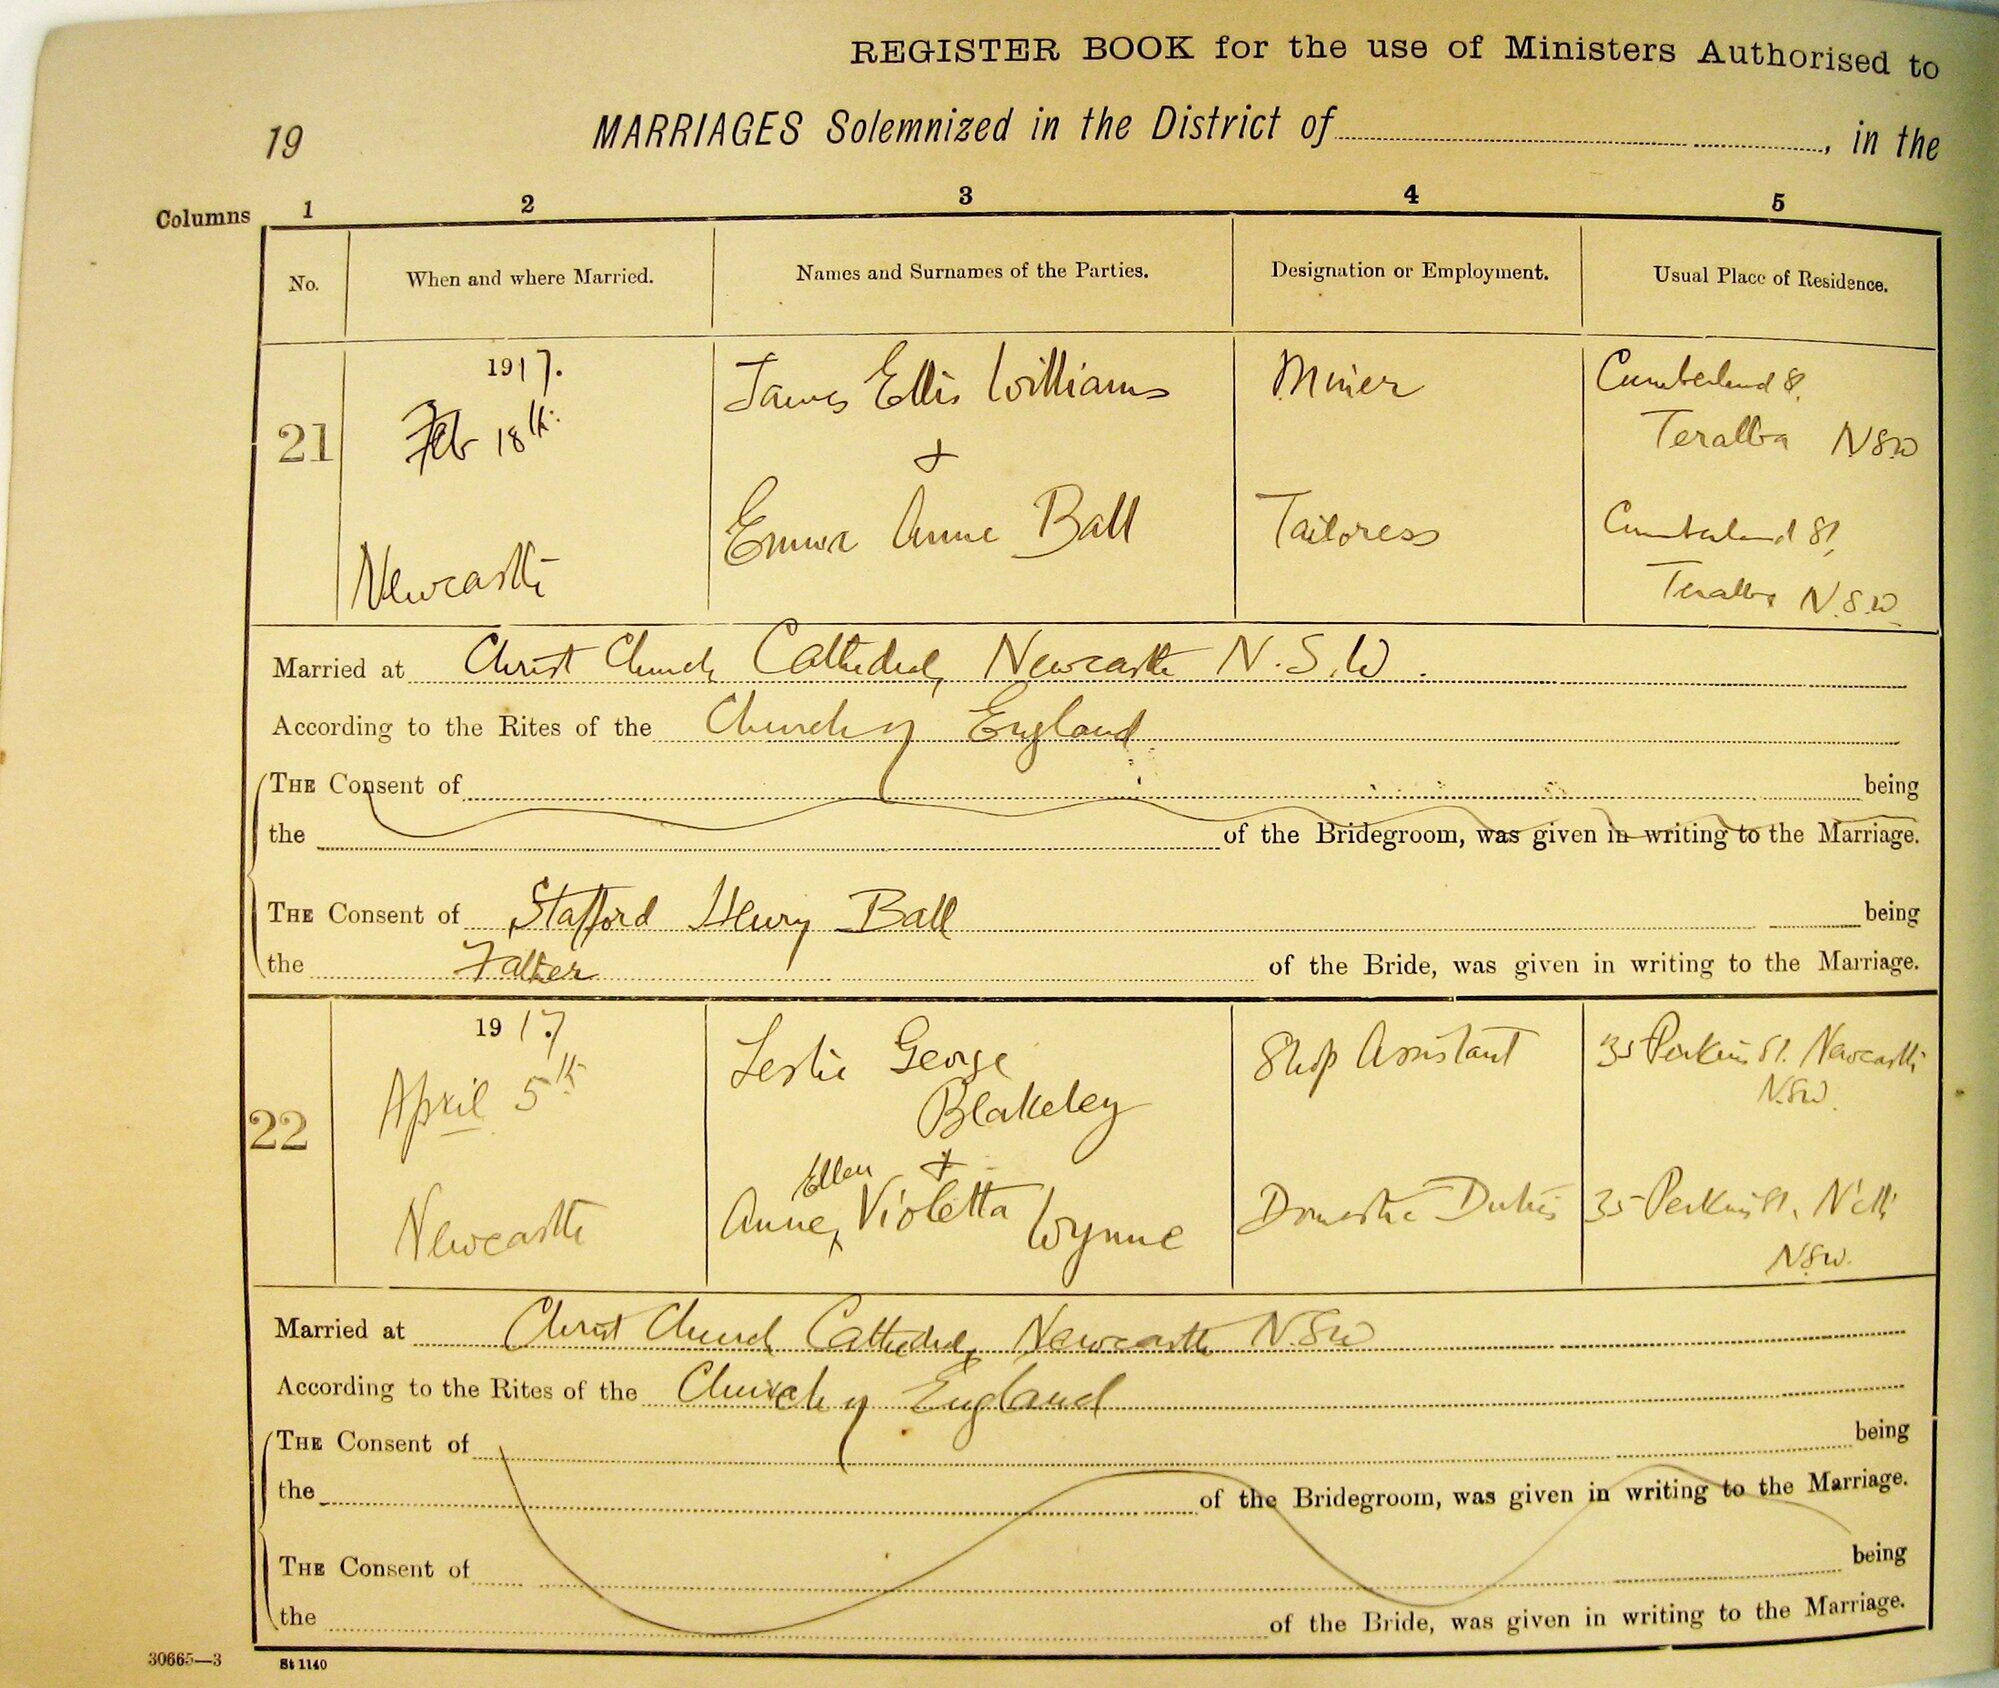 REGISTER BOOK for the use of Ministers Authorised to
19
MARRIAGES Solemnized in the District of , in the
Columns 1 2 3 4 5
No. When and where Married. Names and Surnames of the Parties. Designation or Employment. Usual Place of Residence.
21
1917.
Feb 18th
Newcastle
James Ellis Williams
+
Emma Anne Ball
Miner
Tailoress
Cumberland St,
Teralba NSW
Cumberland St,
Teralba N.S.W.
Married at Christ Church Cathedral, Newcastle N.S.W.
According to the Rites of the Church of England
THE Consent of being
the of the Bridegroom, was given in writing to the Marriage.
THE Consent of Stafford Henry Ball being
the Father of the Bride, was given in writing to the Marriage.
22
1917
April 5th
Newcastle
Leslie George
Blakeley
+
Ellen
Anne, Violetta Wynne
Shop Assistant
Domestic Duties
35 Perkin St. Newcastle
NSW.
35 Perkin St. N'cstle
NSW.
Married at Christ Church Cathedral, Newcastle NSW
According to the Rites of the Church of England
THE Consent of being
the of the Bridegroom, was given in writing to the Marriage.
THE Consent of being
the of the Bride, was given in writing to the Marriage.
30665—3 St 1140